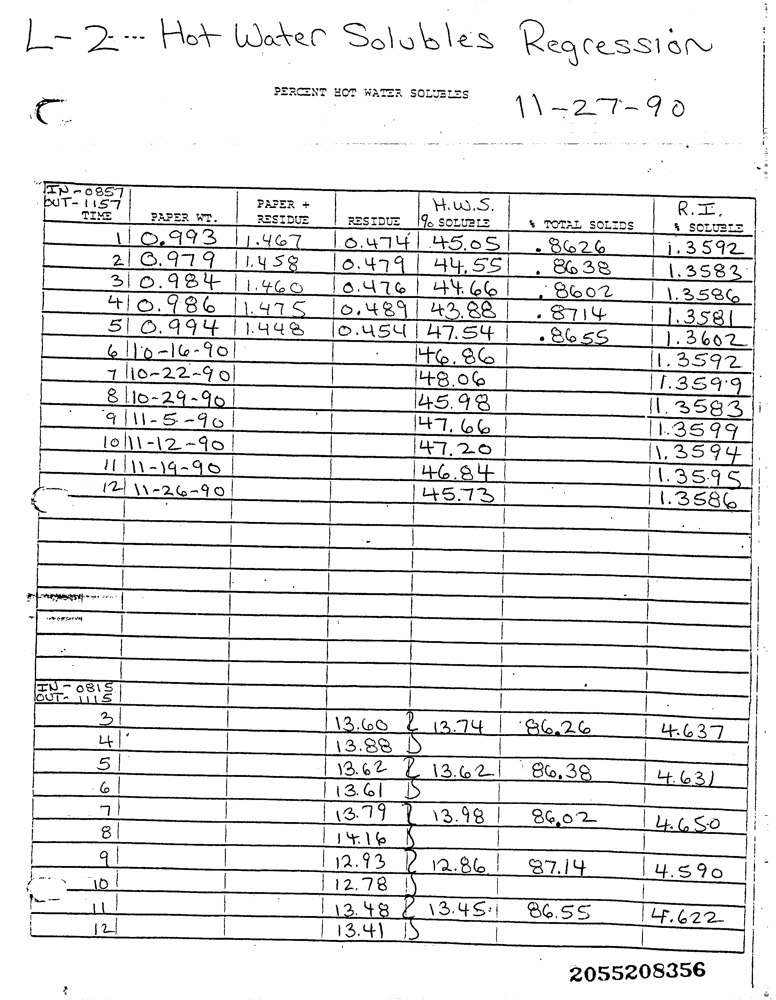 L-2--- Hot Water Solubles Regression
PERCENT HOT WATER SOLUBLES
11-27-90
IN-0857
OUT-1157
TIME PAPER WT. PAPER + RESIDUE RESIDUE H.W.S. % SOLUBLE % TOTAL SOLIDS R.I. % SOLUBLE
1 0.993 1.467 0.474 45.05 .8626 1.3592
2 0.979 1.458 0.479 44.55 .8638 1.3583
3 0.984 1.460 0.476 44.66 .8602 1.3586
4 0.986 1.475 0.489 43.88 .8714 1.3581
5 0.994 1.448 0.454 47.54 .8655 1.3602
6 10-16-90 46.86 1.3592
7 10-22-90 48.06 1.3599
8 10-29-90 45.98 1.3583
9 11-5-90 47.66 1.3599
10 11-12-90 47.20 1.3594
11 11-19-90 46.84 1.3595
12 11-26-90 45.73 1.3586
IN-0815
OUT-1115
3 13.60 13.74 86.26 4.637
4 13.88
5 13.62 13.62 86.38 4.631
6 13.61
7 13.79 13.98 86.02 4.650
8 14.16
9 12.93 12.86 87.14 4.590
10 12.78
11 13.48 13.45 86.55 4.622
12 13.41
2055208356